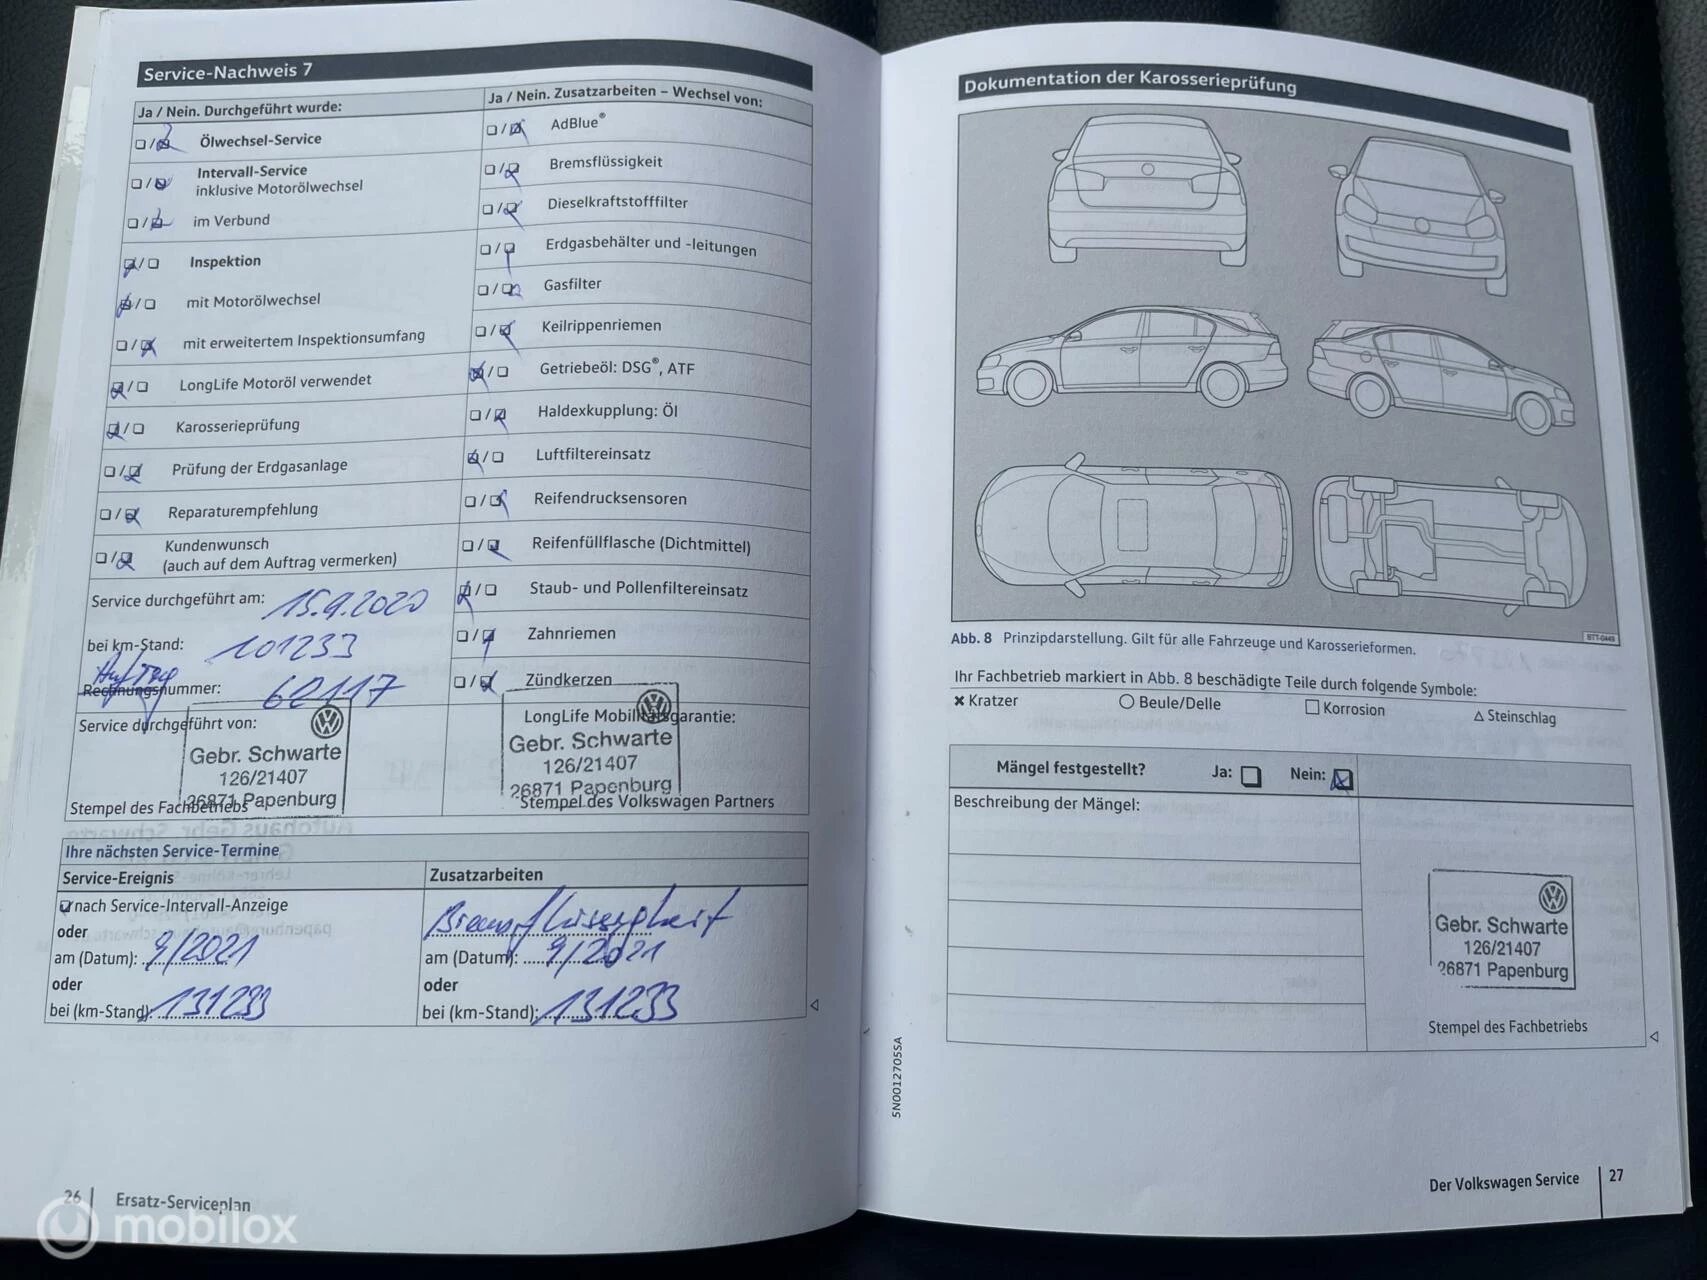 Service-Nachweis 7
Ja / Nein. Durchgeführt wurde:
Ölwechsel-Service
Intervall-Service
inklusive Motorölwechsel
im Verbund
Inspektion
mit Motorölwechsel
mit erweitertem Inspektionsumfang
LongLife Motoröl verwendet
Karosserieprüfung
Prüfung der Erdgasanlage
Reparaturempfehlung
Kundenwunsch
(auch auf dem Auftrag vermerken)
Service durchgeführt am: 15.9.2020
bei km-Stand: 101233
Auftrag
Rechnungsnummer: 62117
Service durchgeführt von:
Gebr. Schwarte
126/21407
26871 Papenburg
Stempel des Fachbetriebs
Ja / Nein. Zusatzarbeiten – Wechsel von:
AdBlue®
Bremsflüssigkeit
Dieselkraftstofffilter
Erdgasbehälter und -leitungen
Gasfilter
Keilrippenriemen
Getriebeöl: DSG®, ATF
Haldexkupplung: Öl
Luftfiltereinsatz
Reifendrucksensoren
Reifenfüllflasche (Dichtmittel)
Staub- und Pollenfiltereinsatz
Zahnriemen
Zündkerzen
LongLife Mobilitätsgarantie:
Gebr. Schwarte
126/21407
26871 Papenburg
Stempel des Volkswagen Partners
Ihre nächsten Service-Termine
Service-Ereignis
nach Service-Intervall-Anzeige
oder
am (Datum): 9/2021
oder
bei (km-Stand): 131233
Zusatzarbeiten
Bremsflüssigkeit
am (Datum): 9/2021
oder
bei (km-Stand): 131233
26 Ersatz-Serviceplan
mobilox
Dokumentation der Karosserieprüfung
BTT-0449
Abb. 8 Prinzipdarstellung. Gilt für alle Fahrzeuge und Karosserieformen.
Ihr Fachbetrieb markiert in Abb. 8 beschädigte Teile durch folgende Symbole:
Kratzer Beule/Delle Korrosion Steinschlag
Mängel festgestellt? Ja: Nein:
Beschreibung der Mängel:
Gebr. Schwarte
126/21407
26871 Papenburg
Stempel des Fachbetriebs
5N0012705SA
Der Volkswagen Service 27